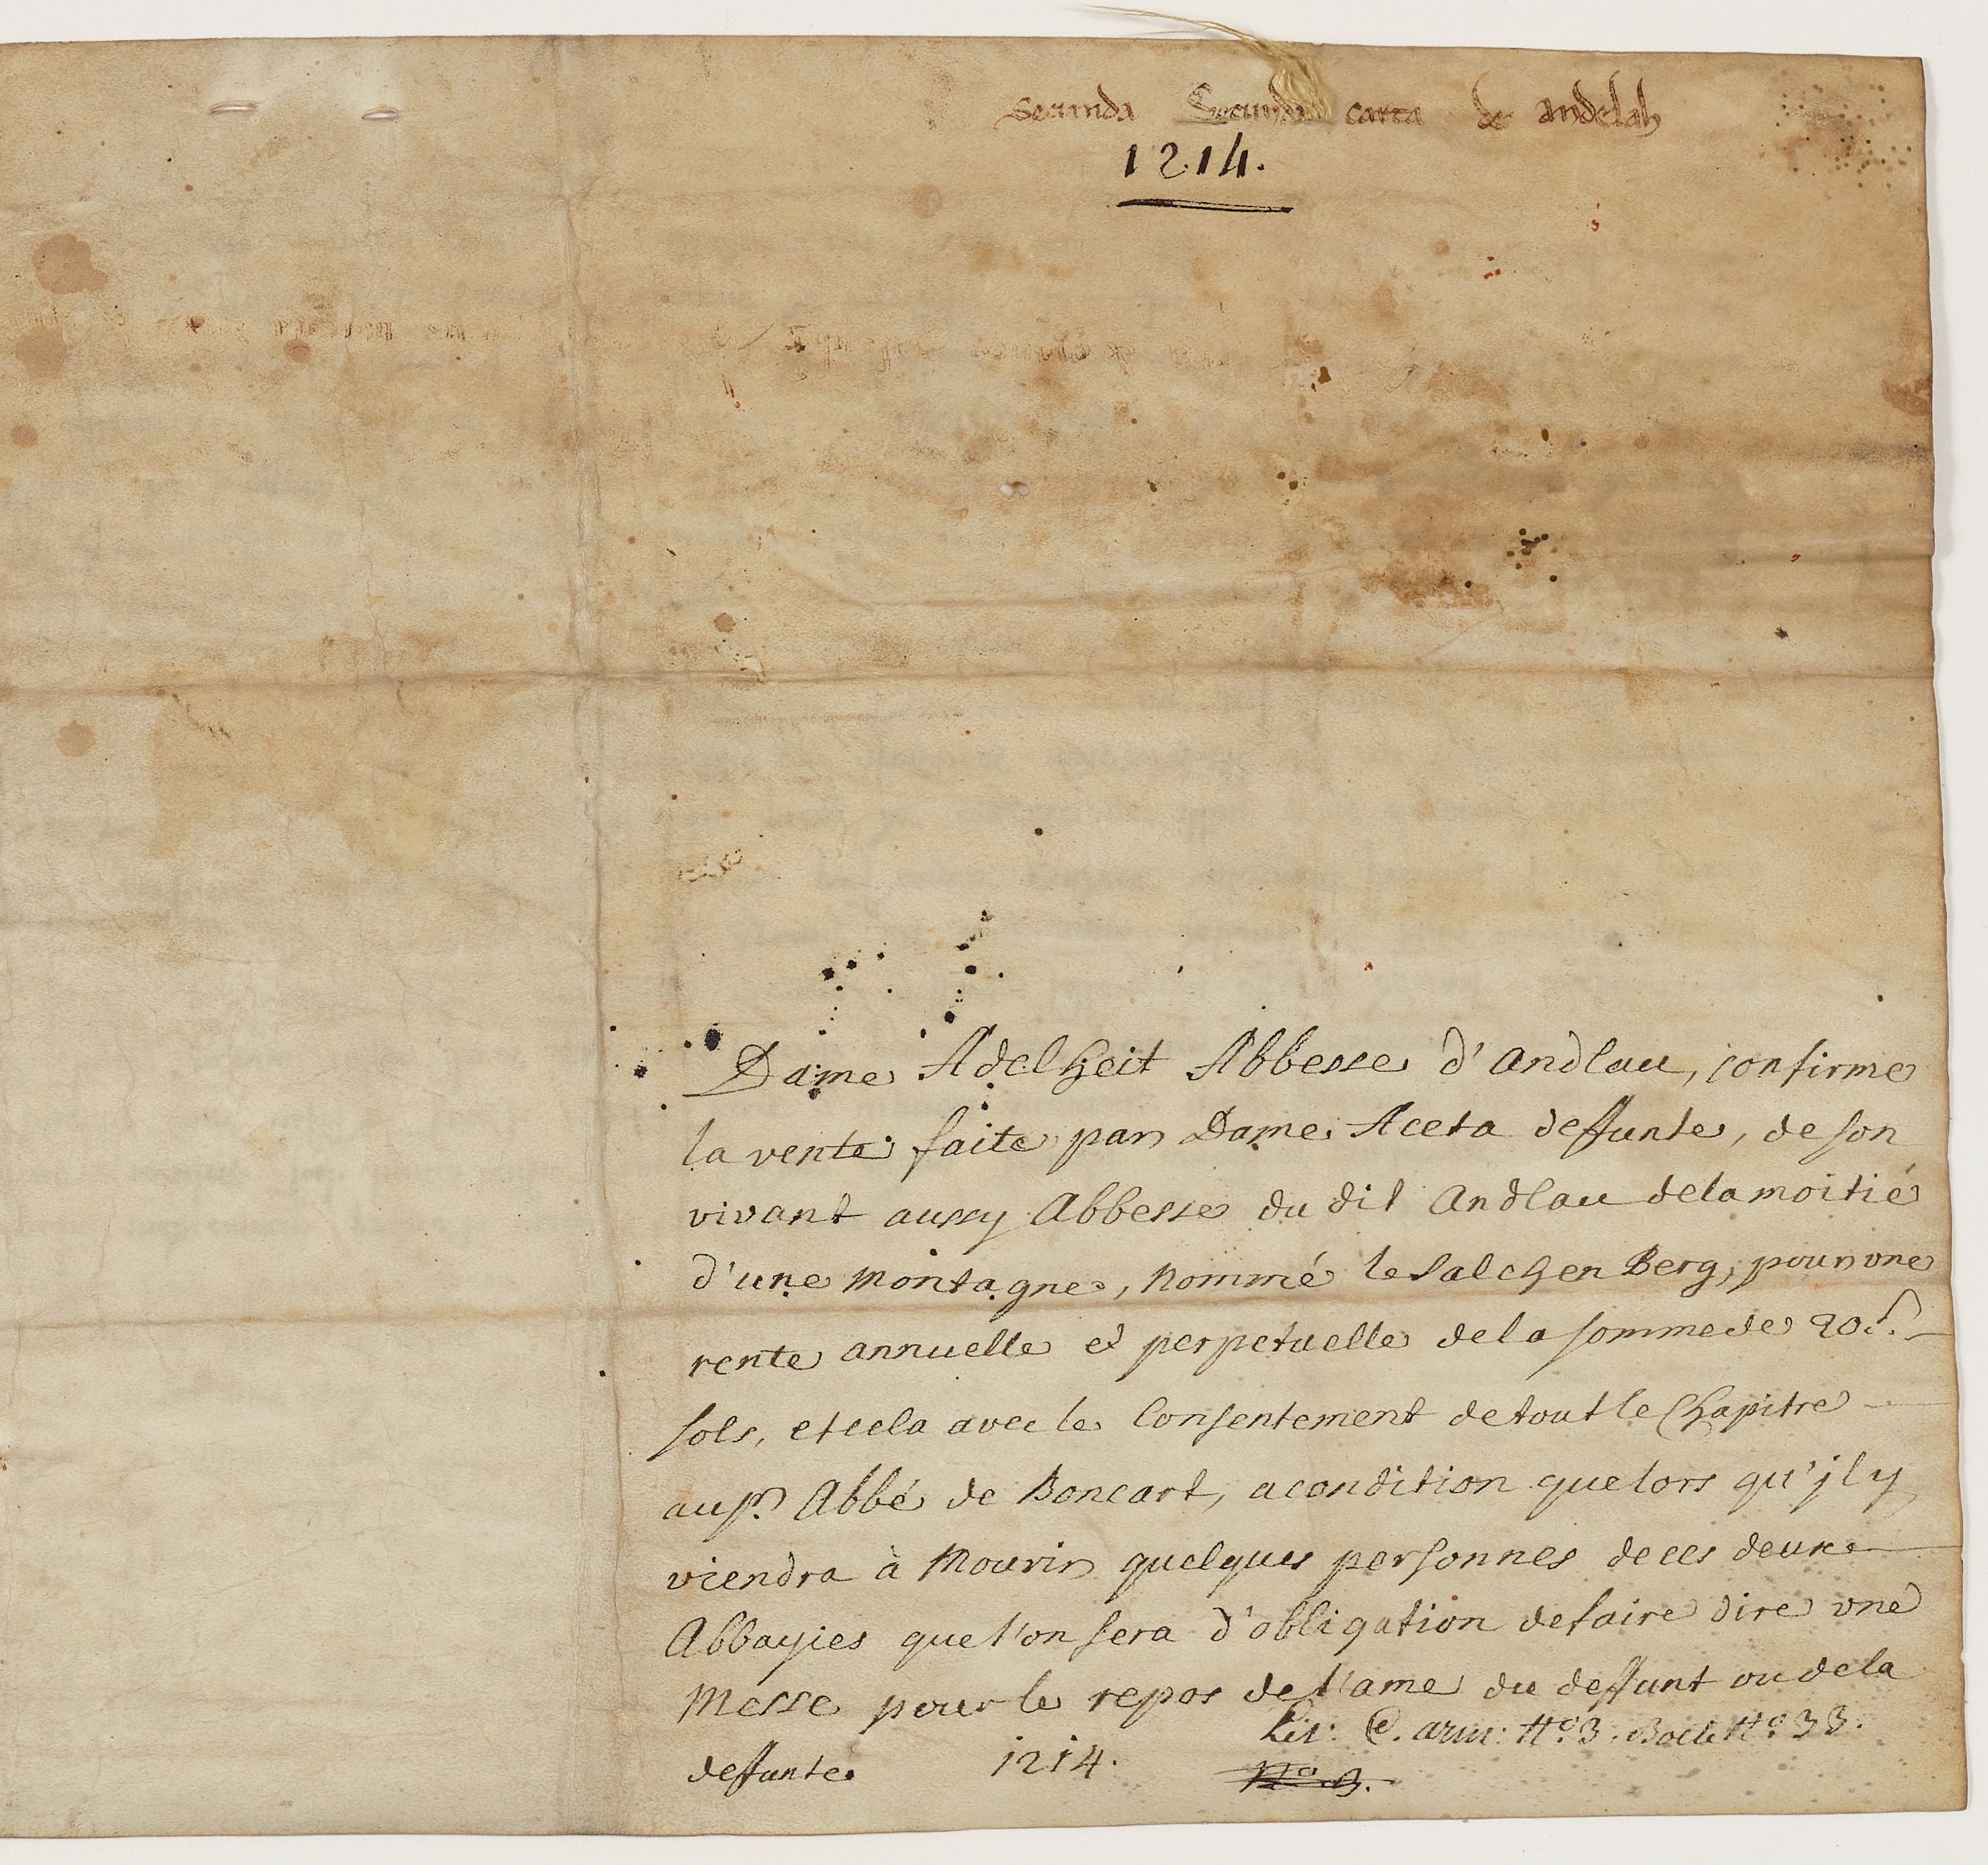 secunda Secunda carta de andelah
1214.
Dame Adelheit Abbesse d'Andlau, confirme
la vente faite par Dame Aceta deffunte, de son
vivant aussy Abbesse du dit Andlau de la moitié
d'une Montagne, Nommé le Salchen Berg, pour une
rente annuelle et perpetuelle de la somme de 20 s.
sols, et cela avec le Consentement de tout le Chapitre
au sr. Abbé de Boncart, a condition que lors qu'jl y
viendra à Mourir quelques personnes de ces deux
Abbayies que l'on sera d'obligation de faire dire une
Messe pour le repos de l'ame du deffunt ou de la
deffunte 1214.
Lit: C. arm: No. 3. No. 33.